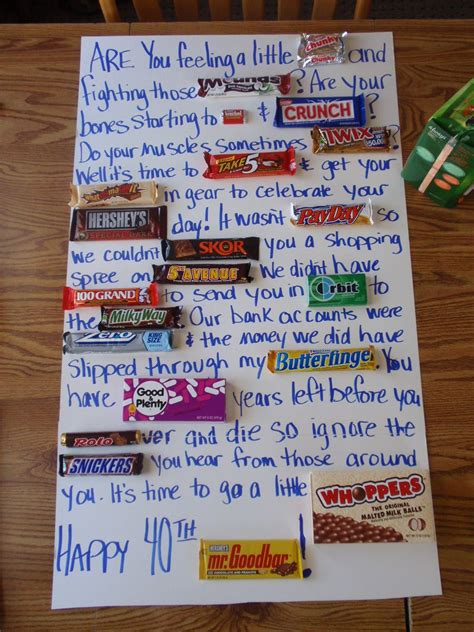 ARE You feeling a little Chunky and
fighting those Mounds ? Are your
bones starting to & CRUNCH ?
Do your muscles sometimes TWIX ?
Well it's time to TAKE 5 & get your
in gear to celebrate your
HERSHEY'S SPECIAL DARK day! It wasn't PayDay so
we couldn't SKOR you a shopping
spree on 5th AVENUE We didn't have
100 GRAND to send you in to Orbit
the MilkyWay Our bank accounts were
ZERO KING SIZE & the money we did have
Slipped through my Butterfinger You
have Good & Plenty years left before you
ROLO over and die so ignore the
SNICKERS you hear from those around
you. It's time to go a little WHOPPERS
THE ORIGINAL MALTED MILK BALLS
HAPPY 40TH HERSHEY'S mr. Goodbar !